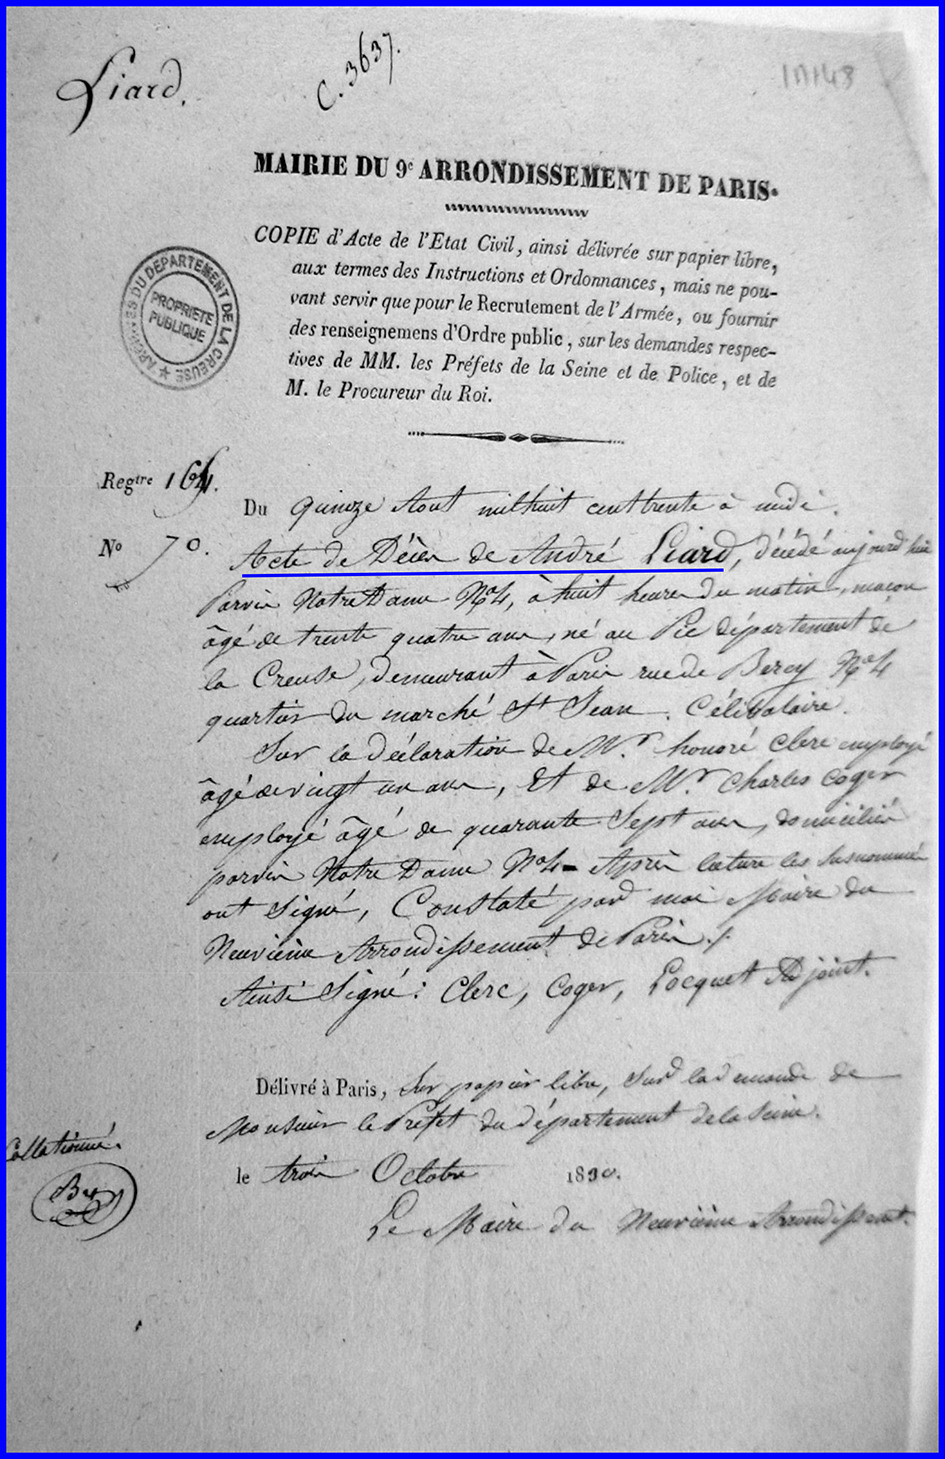 Liard.
C. 3637.
MAIRIE DU 9e ARRONDISSEMENT DE PARIS.
COPIE d'Acte de l'Etat Civil, ainsi délivrée sur papier libre,
aux termes des Instructions et Ordonnances, mais ne pou-
vant servir que pour le Recrutement de l'Armée, ou fournir
des renseignemens d'Ordre public, sur les demandes respec-
tives de MM. les Préfets de la Seine et de Police, et de
M. le Procureur du Roi.
ARCHIVES DU DEPARTEMENT DE LA CREUSE
PROPRIETE
PUBLIQUE
Regtre 164.
Du quinze Aout mil huit cent trente à midi.
No 70.
Acte de Décès de André Liard, décédé aujourd'hui
Parvis Notre Dame No 4, à huit heures du matin, maçon
âgé de trente quatre ans, né au Pic département de
la Creuse, demeurant à Paris rue de Bercy No 4
quartier du marché St Jean. Célibataire.
Sur la déclaration de Mr honoré Clerc employé
âgé de vingt un ans, Et de Mr Charles Coger
employé âgé de quarante Sept ans, domiciliés
parvis Notre Dame No 4 - Après lecture les susnommés
ont Signé, Constaté par moi Maire du
Neuvième Arrondissement de Paris ./.
Ainsi Signé : Clerc, Coger, Locquet Adjoint.
Délivré à Paris, Sur papier libre, Sur la demande de
Monsieur le Préfet du département de la Seine.
Collationné.
le trois Octobre 1830.
Le Maire du Neuvième Arrondissement.